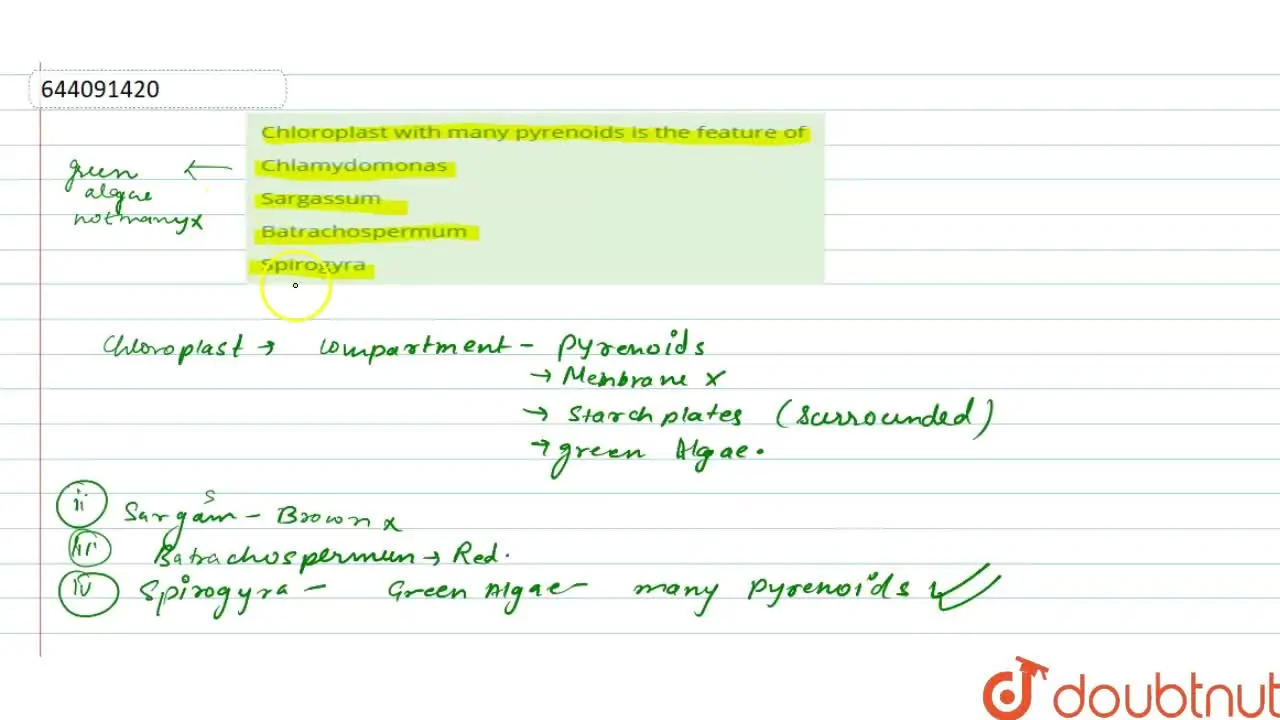 644091420
Chloroplast with many pyrenoids is the feature of
Chlamydomonas
Sargassum
Batrachospermum
Spirogyra
green
algae
not many x
Chloroplast → compartment - pyrenoids
→ Membrane x
→ Starch plates (surrounded)
→ green Algae.
ii Sargam - Brown x
s
iii Batrachospermum → Red.
iv Spirogyra - Green Algae many pyrenoids
doubtnut